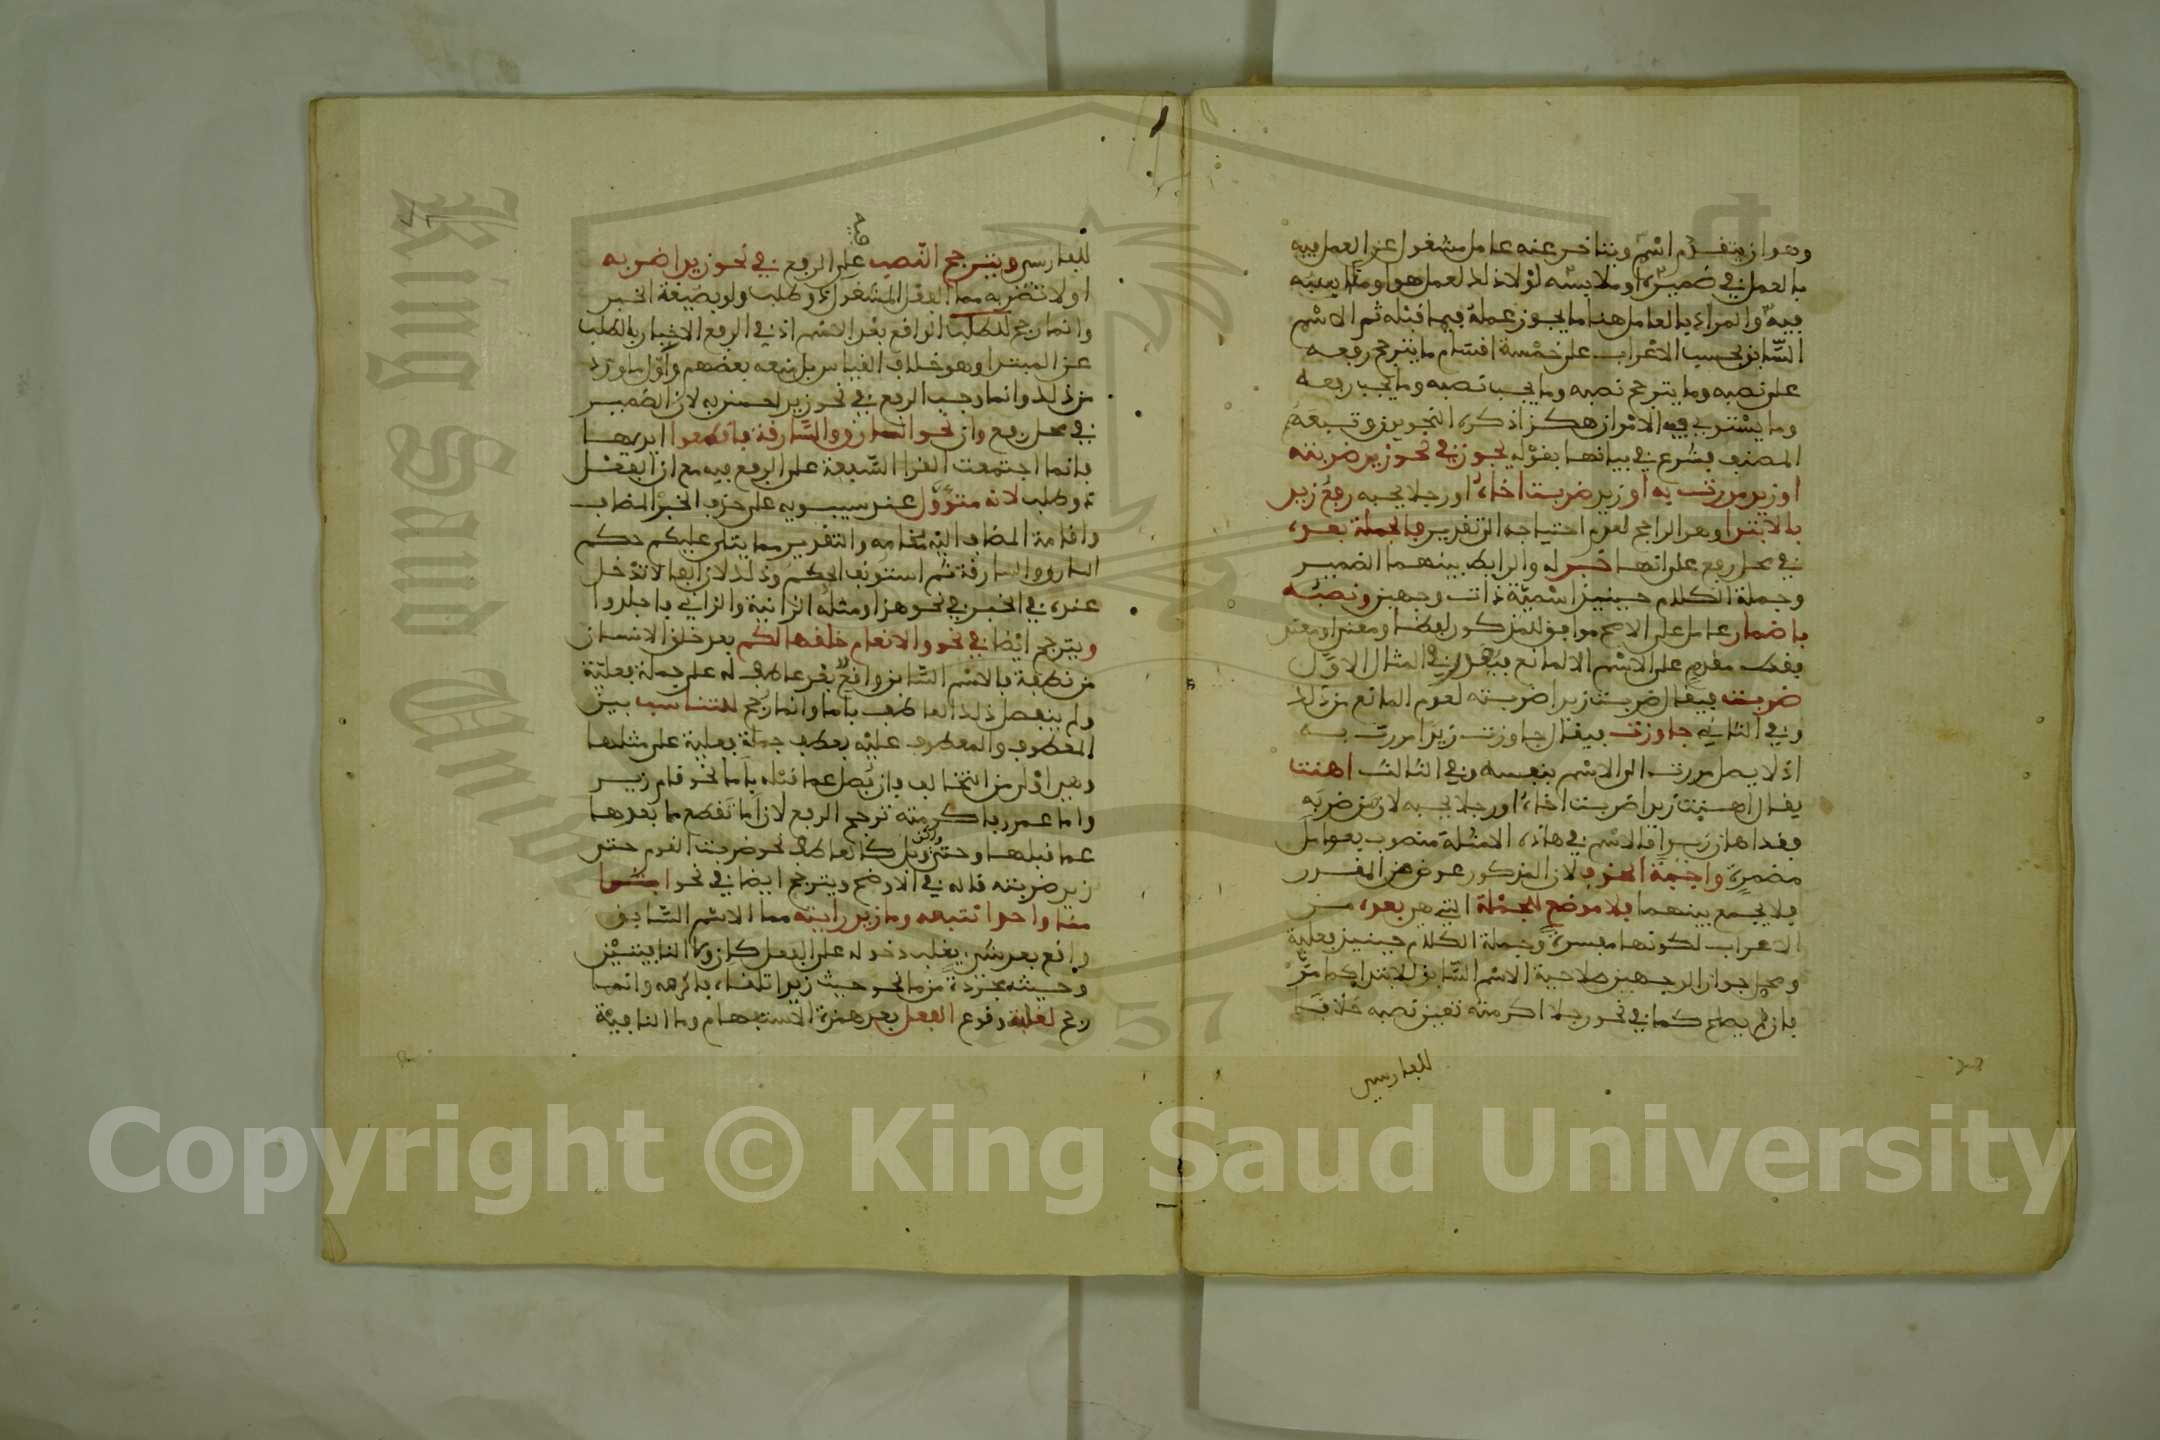 وهو ان يتقدم اسم ويتاخر عنه عامل مشغول عن العمل فيه
بالعمل في ضميره او ملابسه لولا ذلك لعمل هو او مناسبه
فيه والمراد بالعامل هنا ما يجوز عمله فيما قبله ثم الاسم
السابق بحسب الاعراب على خمسة اقسام ما يترجح رفعه
على نصبه وما يترجح نصبه وما يجب نصبه وما يجب رفعه
وما يستوي فيه الامران هكذا ذكره النحويون وتبعهم
المصنف فشرع في بيانها بقوله يجوز في نحو زيد ضربته
او زيد مررت به او زيد ضربت اخاه او رجلا يحبه رفع زيد
بالابتدا وهو الراجح لعدم احتياجه الى تقدير فالجملة بعده
في محل رفع على انها خبر له والرابط بينهما الضمير
وجملة الكلام حينيذ اسمية ذات وجهين ونصبه
باضمار عامل على الاصح موافق للمذكور لفظا ومعنى او معنى
فقط مقدم على الاسم الا لمانع فيقدر في المثال الاول
ضربت فيقال ضربت زيدا ضربته لعدم المانع من ذلك
وفي الثاني جاوزت فيقال جاوزت زيدا مررت به
اذ لا يصل مررت الى الاسم بنفسه وفي الثالث اهنت
يقال اهنت زيدا ضربت اخاه او رجلا يحبه لان من ضربه
فقد اهان زيدا فالاسم في هاذه الامثلة منصوب بعوامل
مضمرة واجبة الحذف لان المذكور عوض عن المقدر
فلا يجمع بينهما فلا موضع للجملة التي هي بعده من
الاعراب لكونها مفسرة وجملة الكلام حينيذ فعلية
ومحل جواز الوجهين صلاحية الاسم السابق للابتدا كما مر
فان لم يصلح كما في نحو رجلا اكرمته تعين نصبه خلافا
للفارسي
للفارسي ويترجح النصب على الرفع في نحو زيدا اضربه
او لا تضربه مما الفعل المشغول ذو طلب ولو بصيغة الخبر
وانما رجح لطلب الواقع بعد الاسم اذ في الرفع الاخبار بالطلب
عن المبتدا وهو خلاف القياس بل منعه بعضهم واول ما ورد
من ذلك وانما وجب الرفع في نحو زيد احسن به لان الضمير
في محل رفع وان نحو السارق والسارقة فاقطعوا ايديهما
فانما اجتمعت القرا السبعة على الرفع فيه مع ان الفعل
ذو طلب لانه متؤول عند سيبويه على حذف الخبر المضاف
واقامة المضاف اليه مقامه والتقدير مما يتلى عليكم حكم
السارق والسارقة ثم استونف الحكم وذلك لان الفا لا تدخل
عنده في الخبر في نحو هذا ومثله الزانية والزاني فاجلدوا
ويترجح ايضا في نحو والانعام خلقها لكم بعد خلق الانسان
من نطفة فالاسم السابق واقع بعد عاطف له على جملة فعلية
ولم ينفصل ذلك العاطف باما وانما رجح للتناسب بين
المعطوف والمعطوف عليه بعطف جملة فعلية على مثلها
وهو اولى من التخالف فان فصل عما قبله باما نحو قام زيد
واما عمرو فاكرمته ترجح الرفع لان اما تقطع ما بعدها
عما قبلها وحتى ولكن وبل كالعاطف نحو ضربت القوم حتى
زيد ضربته قاله في الاوضح ويترجح ايضا في نحو ابشرا
منا واحدا نتبعه وما زيد رايته مما الاسم السابق
واقع بعد شيء يغلب دخوله على الفعل كان وما النافيتين
وحيث مجردة من ما نحو حيث زيدا تلقاه فاكرمه وانما
رجح لغلبة وقوع الفعل بعد همزة الاستفهام وما النافية
King Saud University
1957
Copyright © King Saud University